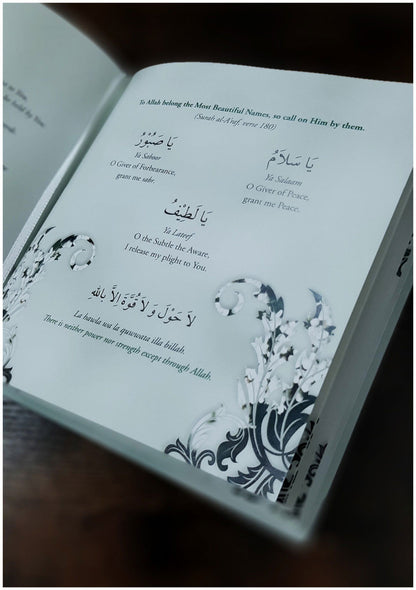 To Allah belong the Most Beautiful Names, so call on Him by them.
(Surah al-A'raf, verse 180)
يَا صَبُوْرُ
Ya Sabour
O Giver of Forbearance,
grant me sabr.
يَا سَلَامُ
Ya Salaam
O Giver of Peace,
grant me Peace.
يَا لَطِيْفُ
Ya Lateef
O the Subtle the Aware,
I release my plight to You.
لَا حَوْلَ وَ لَا قُوَّةَ اِلَّا بِاللهِ
La hawla wa la quwwata illa billah.
There is neither power nor strength except through Allah.